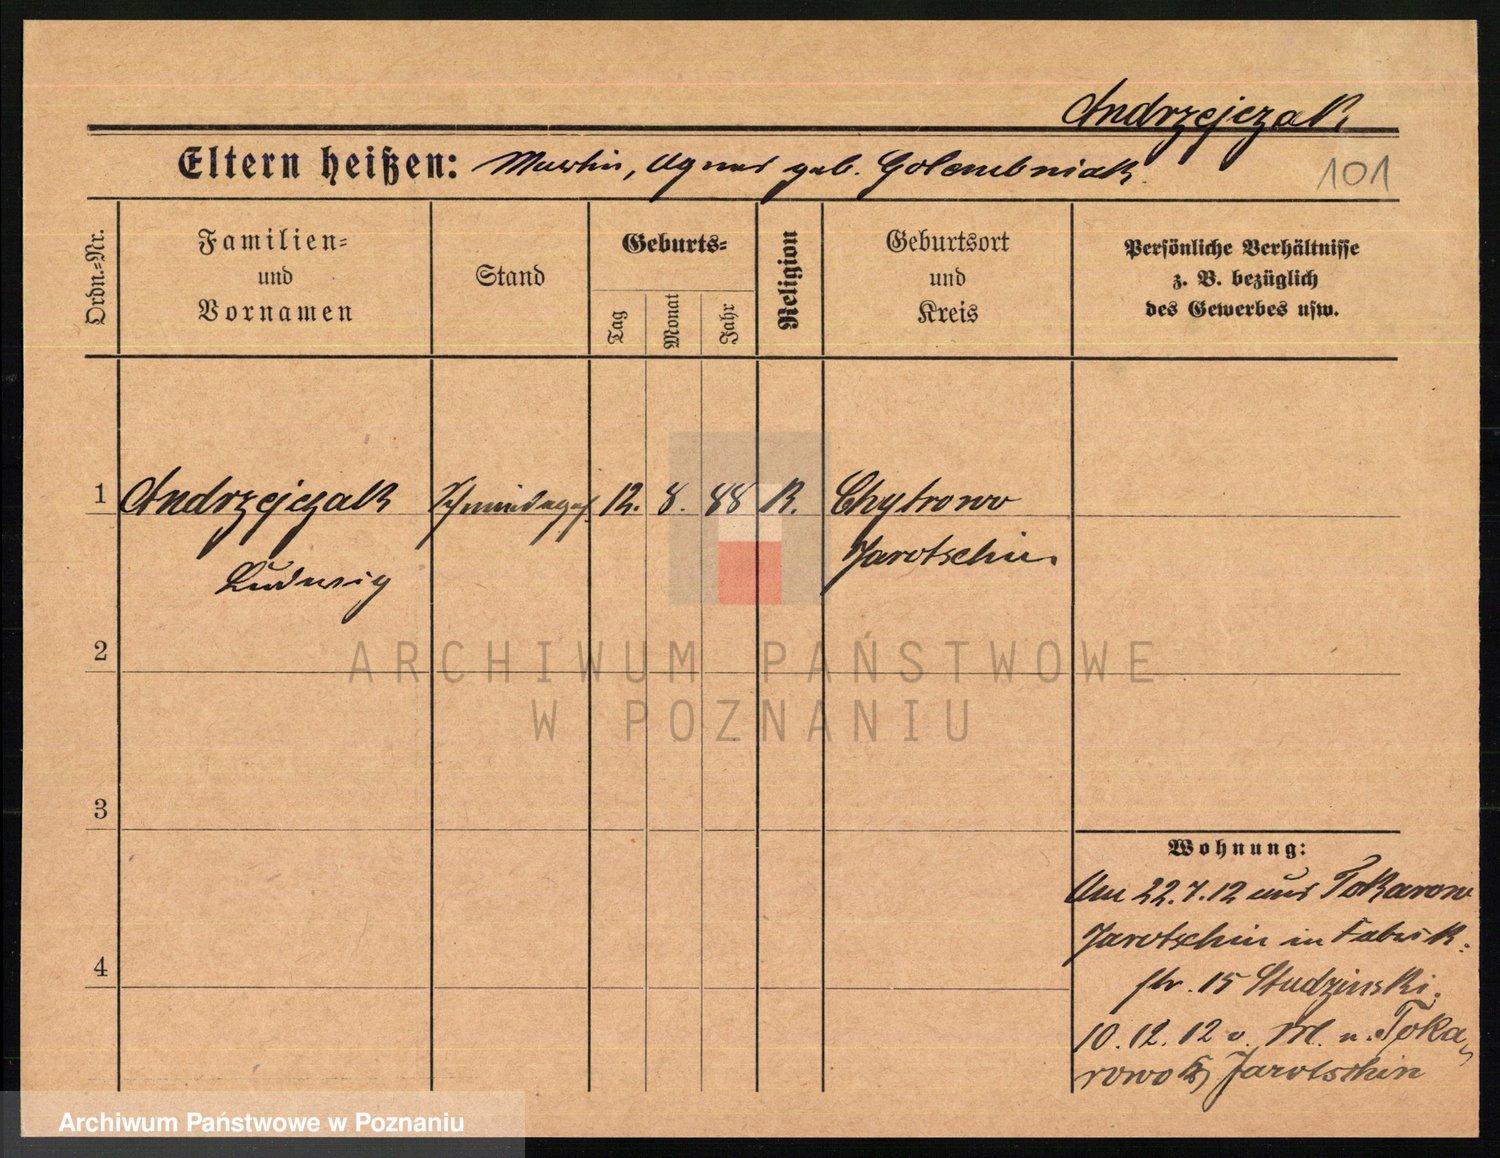 Andrzejczak
Eltern heißen: Martin, Agnes geb. Golembniak
101
Ordn.=Nr.
Familien=
und
Vornamen
Stand
Geburts=
Tag
Monat
Jahr
Religion
Geburtsort
und
Kreis
Persönliche Verhältnisse
z. B. bezüglich
des Gewerbes usw.
1 Andrzejczak Schmiedegs. 12. 8. 88 K. Chytrowo
Ludwig Jarotschin
2
3
4
Wohnung:
Am 22.7.12 aus Tokarow
Jarotschin in Fabrik-
str. 15 Studzinski.
10.12.12 v. M. n. Toka-
rowo Jarotschin
ARCHIWUM PAŃSTWOWE
W POZNANIU
Archiwum Państwowe w Poznaniu